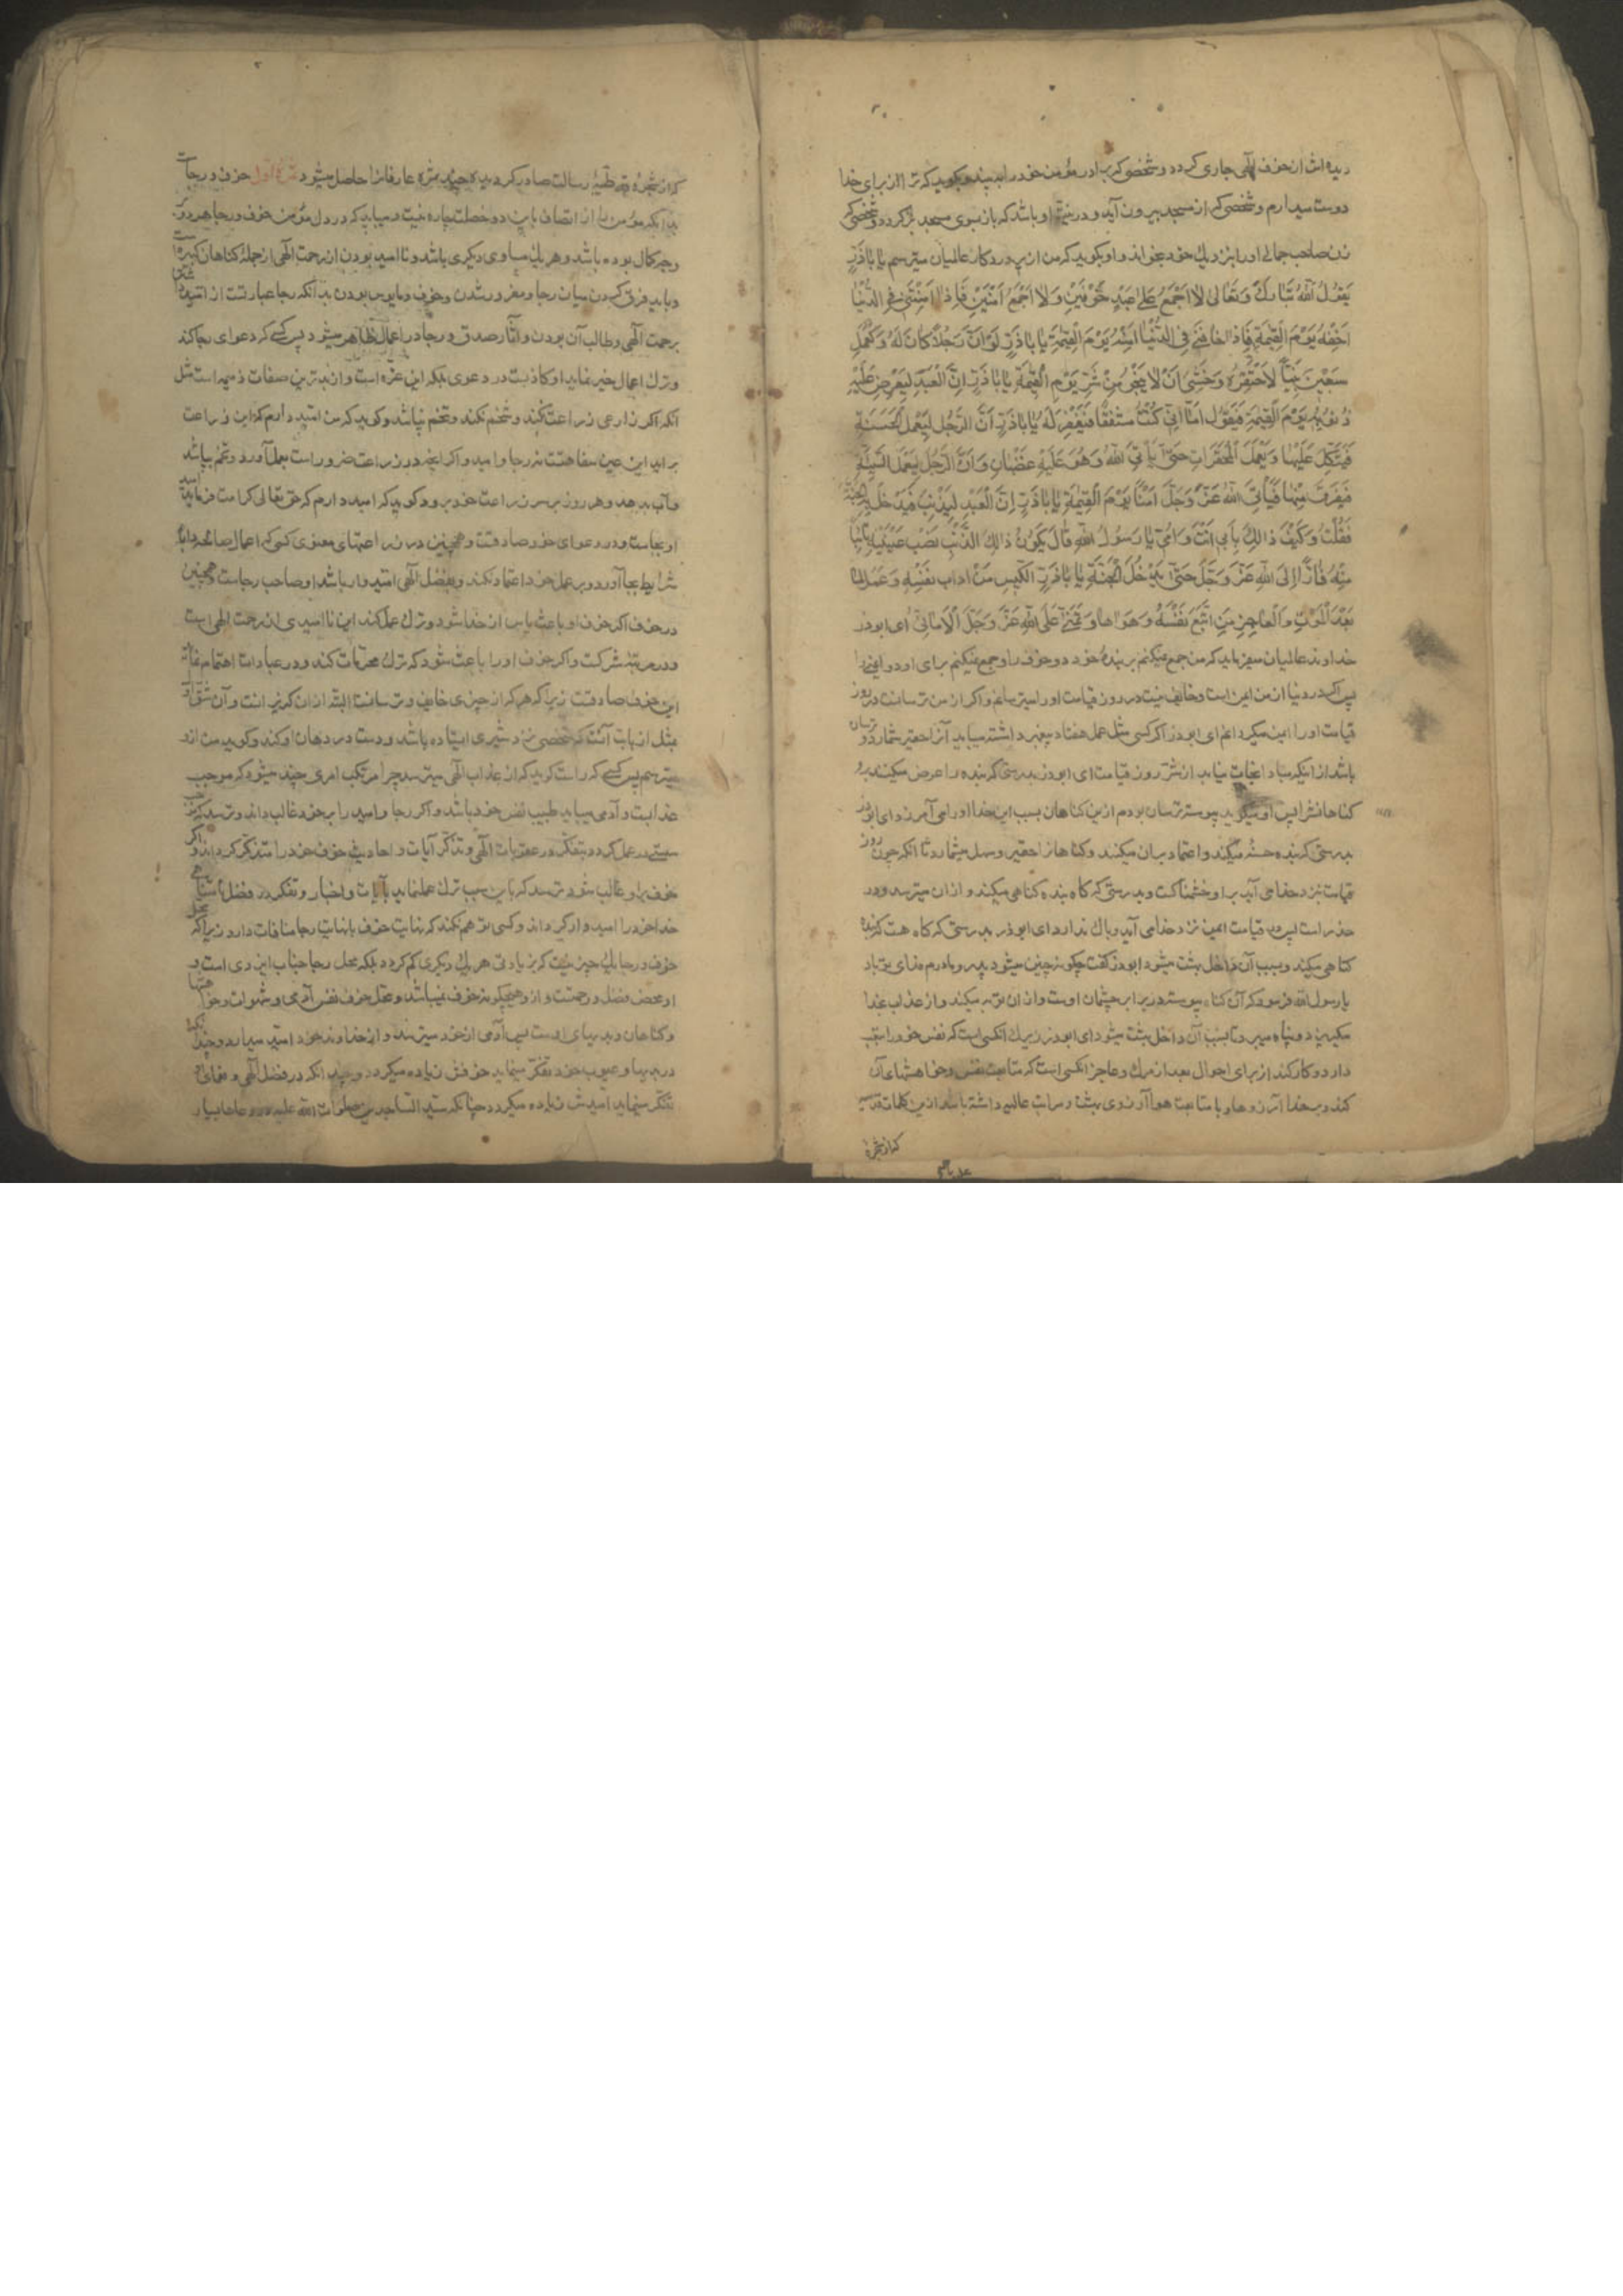 دیده اش از خوف الهی جاری گردد و شخصی که برادر مؤمن خود را ببیند و بگوید که ترا از برای خدا
دوست میدارم و شخصی که از مسجد بیرون آید و در نیتش او باشد که باز بسوی مسجد برگردد و شخصی که
زن صاحب جمالی او را بنزدیك خود بخواند و او بگوید که من از پروردگار عالمیان میترسم یا اباذر
یَقُولُ اللّٰهُ تَبَارَكَ وَتَعَالىٰ لَا اَجْمَعُ عَلىٰ عَبْدٍ خَوْفَیْنِ وَلَا اَجْمَعُ اَمْنَیْنِ فَاِذَا اَمِنَنِی فِی الدُّنْیَا
اَخَفْتُهُ یَوْمَ الْقِیٰمَةِ فَاِذَا خَافَنِی فِی الدُّنْیَا اٰمَنْتُهُ یَوْمَ الْقِیٰمَةِ یَا اَبَاذَرٍّ لَوْ اَنَّ رَجُلًا كَانَ لَهُ كَعَمَلِ
سَبْعِینَ نَبِیًّا لَاحْتَقَرَهُ وَخَشِیَ اَنْ لَا یَنْجُوَ مِنْ شَرِّ یَوْمِ الْقِیٰمَةِ یَا اَبَاذَرٍّ اِنَّ الْعَبْدَ لَیُعْرَضُ عَلَیْهِ
ذُنُوبُهُ یَوْمَ الْقِیٰمَةِ فَیَقُولُ اَمَا اِنِّی كُنْتُ مُشْفِقًا فَیُغْفَرُ لَهُ یَا اَبَاذَرٍّ اِنَّ الرَّجُلَ لَیَعْمَلُ الْحَسَنَةَ
فَیَتَّكِلُ عَلَیْهَا وَیَعْمَلُ الْمُحَقَّرَاتِ حَتّٰی یَأْتِیَ اللّٰهَ وَهُوَ عَلَیْهِ غَضْبَانُ وَاِنَّ الرَّجُلَ لَیَعْمَلُ السَّیِّئَةَ
فَیَفْرَقُ مِنْهَا فَیَأْتِی اللّٰهَ عَزَّ وَجَلَّ اٰمِنًا یَوْمَ الْقِیٰمَةِ یَا اَبَاذَرٍّ اِنَّ الْعَبْدَ لَیُذْنِبُ فَیَدْخُلُ بِهِ الْجَنَّةَ
فَقُلْتُ وَكَیْفَ ذٰلِكَ بِاَبِی اَنْتَ وَاُمِّی یَا رَسُولَ اللّٰهِ قَالَ یَكُونُ ذٰلِكَ الذَّنْبُ نَصْبَ عَیْنَیْهِ تَائِبًا
مِنْهُ فَارًّا اِلَی اللّٰهِ عَزَّ وَجَلَّ حَتّٰی یَدْخُلَ الْجَنَّةَ یَا اَبَاذَرٍّ الْكَیِّسُ مَنْ اَدَابَ نَفْسَهُ وَعَمِلَ لِمَا
بَعْدَ الْمَوْتِ وَالْعَاجِزُ مَنِ اتَّبَعَ نَفْسَهُ وَهَوَاهَا وَتَمَنّٰی عَلَی اللّٰهِ عَزَّ وَجَلَّ الْاَمَانِیَّ ای ابوذر
خداوند عالمیان میفرماید که من جمع نمیکنم بر بندۀ خود دو خوف را و جمع نمیکنم برای او دو ایمنی را
پس اگر در دنیا از من ایمن است و خایف نیست در روز قیامت او را میترسانم و اگر از من ترسانست در روز
قیامت او را ایمن میگردانم ای ابوذر اگر کسی مثل عمل هفتاد پیغمبر داشته میباید آنرا حقیر شمارد و ترسان
باشد از اینکه مبادا نجات نیابد از شر روز قیامت ای ابوذر بدرستی که بنده را عرض میکنند برو
گناهانش را پس او میگوید پیوسته ترسان بودم ازین گناهان بسبب این خدا او را می آمرزد ای ابوذر
بدرستی که بنده حسنه میکند و اعتماد بران میکند و گناهان را حقیر و سهل میشمارد تا آنکه چون روز
قیامت نزد خدا می آید بر او خشمناکست و بدرستی که گاه بنده گناهی میکند و از ان میترسد و در
حذر است پس در قیامت ایمن نزد خدا می آید و باك ندارد ای ابوذر بدرستی که گاه هست که بنده
گناهی میکند و بسبب آن داخل بهشت میشود ابوذر گفت چگونه چنین میشود پدر و مادرم فدای تو باد
یا رسول الله فرمود که آن گناه پیوسته در برابر چشمان اوست و از ان توبه میکند و از عذاب خدا
میگریزد و پناه میبرد تا بسبب آن داخل بهشت میشود ای ابوذر زیرك آنکسی است که نفس خود را بتعب
دارد و کار کند از برای احوال بعد از مرك و عاجز آنکسی است که متابعت نفس و خواهشهای آن
کند و بر خدا آرزوها و با متابعت هوا آرزوی بهشت و مراتب عالیه داشته باشد ازین کلمات قدسیه
که از شجرۀ
که از شجرۀ طیبۀ رسالت صادر گردیده چند ثمره عارفانرا حاصل میشود ثمرۀ اول خوف و رجاست
بدانکه مؤمن را از اتصاف باین دو خصلت چاره نیست و میباید که در دل مؤمن خوف و رجا هر دو بر
وجه کمال بوده باشد و هر یك مساوی دیگری باشد و نا امید بودن از رحمت الهی از جملۀ گناهان کبیره است
و باید فرق کردن میان رجا و مغرور شدن و خوف و مایوس بودن بدانکه رجا عبارتست از امید داشتن
برحمت الهی و طالب آن بودن و آثار صدق و رجا در اعمال ظاهر میشود پس کسی که دعوای رجا کند
و ترك اعمال خیر نماید او کاذبست در دعوی بلکه این غره است و از بدترین صفات ذمیمه است مثل
آنکه اگر زارعی زراعت نکند و شخم نکند و تخم نپاشد و گوید که من امید دارم که این زراعت
براید این عین سفاهتست نه رجا و امید و اگر آنچه در زراعت ضرور است بعمل آورد و تخم بپاشد
و آب بدهد و هر روز بر سر زراعت خود برود و گوید که امید دارم که حق تعالی کرامت فرماید امید
او بجاست و در دعوای خود صادقست و همچنین در زراعتهای معنوی کسی که اعمال صالحه را با
شرایط بجا آورد و بر عمل خود اعتماد نکند و بفضل الهی امیدوار باشد او صاحب رجاست و همچنین
در خوف اگر خوف او باعث یاس از خدا شود و ترك عمل کند این ناامیدی از رحمت الهی است
و در مرتبۀ شرکست و اگر خوف او را باعث شود که ترك محرمات کند و در عبادات اهتمام نماید
این خوف صادقست زیرا که هر که از چیزی خایف و ترسانست البته از ان گریزانست
مثل ازبابت آنست که شخصی نزد شیری ایستاده باشد و دست در دهان او کند و گوید من ازو
میترسم پس کسی که راست گوید که از عذاب الهی میترسد چرا مرتکب امری چند میشود که موجب
عذابست و آدمی میباید طبیب نفس خود باشد و اگر رجا و امید را بر خود غالب داند و ترسد که
سستی در عمل کردد بتفکر در عقوبات الهی و تذکر آیات و احادیث خوف خود را متذکر گرداند و اگر
خوف برو غالب شود و ترسد که باین سبب ترك عمل نماید بآیات و اخبار و تفکر در فضل نامتناهی
خدا خود را امیدوار گرداند و کسی توهم نکند که نهایت خوف با نهایت رجا منافات دارد زیرا که محل
خوف و رجا یك چیز نیست که بزیادتی هر یك دیگری کم گردد بلکه محل رجا جناب ایزدی است و
او محض فضل و رحمتست و ازو هیچگونه خوف نمیباشد و محل خوف نفس آدمی و شهوات و خواهشها
و گناهان و بدیهای اوست پس آدمی از خود میترسد و از خداوند خود امید میدارد و چندانکه
در بدیها و عیوب خود تفکر مینماید خوفش زیاده میگردد و چندانکه در فضل الهی و نعمای او
تفکر مینماید امیدش زیاده میگردد چنانکه سید الساجدین صلوات الله علیه در دعاها بسیار